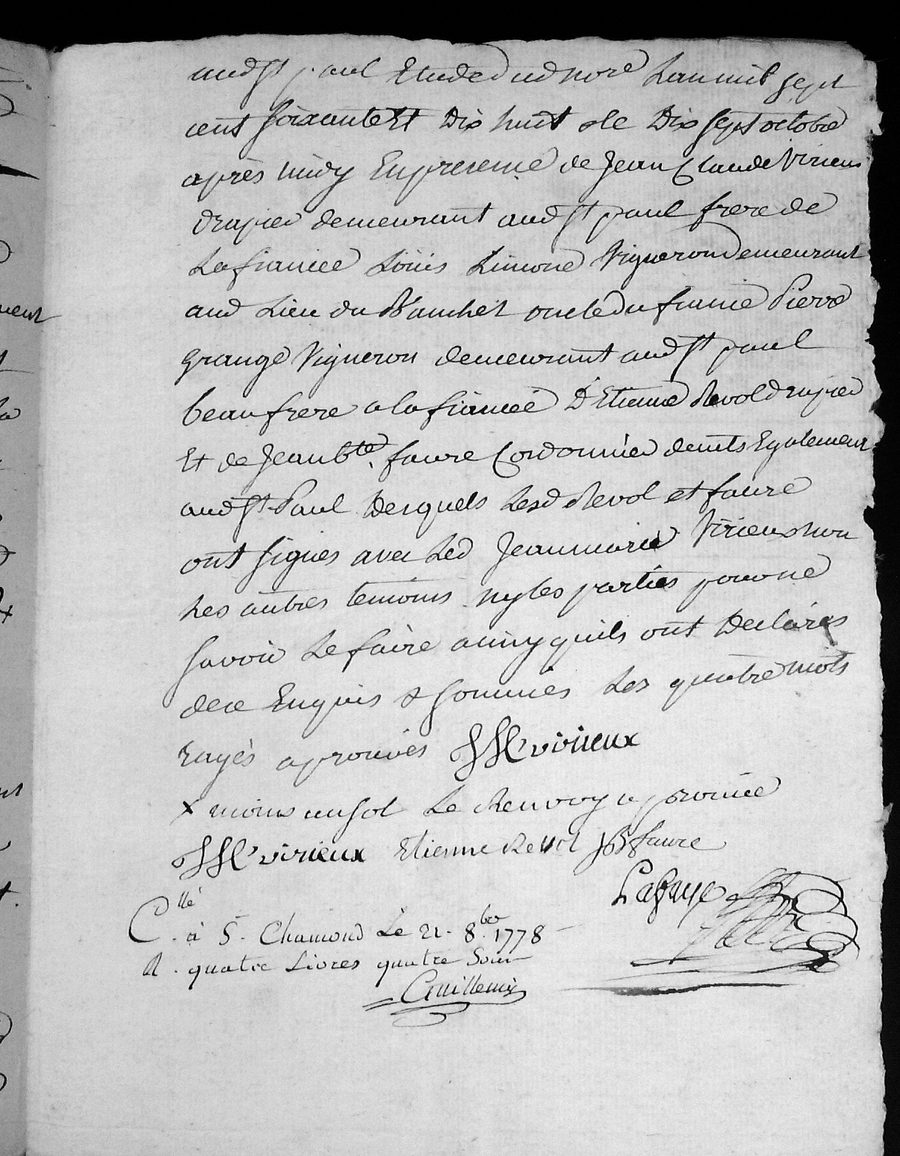 aud St paul Etude dud nore Lan mil sept
cent soixante Et Dix huit & le Dix sept octobre
après midy En presence de Jean Claude Virieux
drapier demeurant aud St paul frere de
La fiancée Loüis Limone Vigneron demeurant
aud Lieu du Banchet oncle du fiancé Pierre
grange Vigneron demeurant aud St paul
beaufrere a la fiancée D'Etienne Revol drapier
Et de Jean Bte. faure Cordonnier demts Egalement
aud St. Paul Desquels Lesd Revol et faure
ont signés avec Led Jean marie Virieux non
Les autres temoins ny les parties pour ne
savoir Le faire ainsy quils ont Declarés
de ce Enquis & sommés Les quatre mots
rayés aprouvés JJC virieux
x moins un sol Le Renvoy aprouvée
JJC virieux Etienne Revol JB faure
Lafaye
C.llé à St. Chamond Le 21. 8.bre 1778
R. quatre Livres quatre Sous
Guillemin